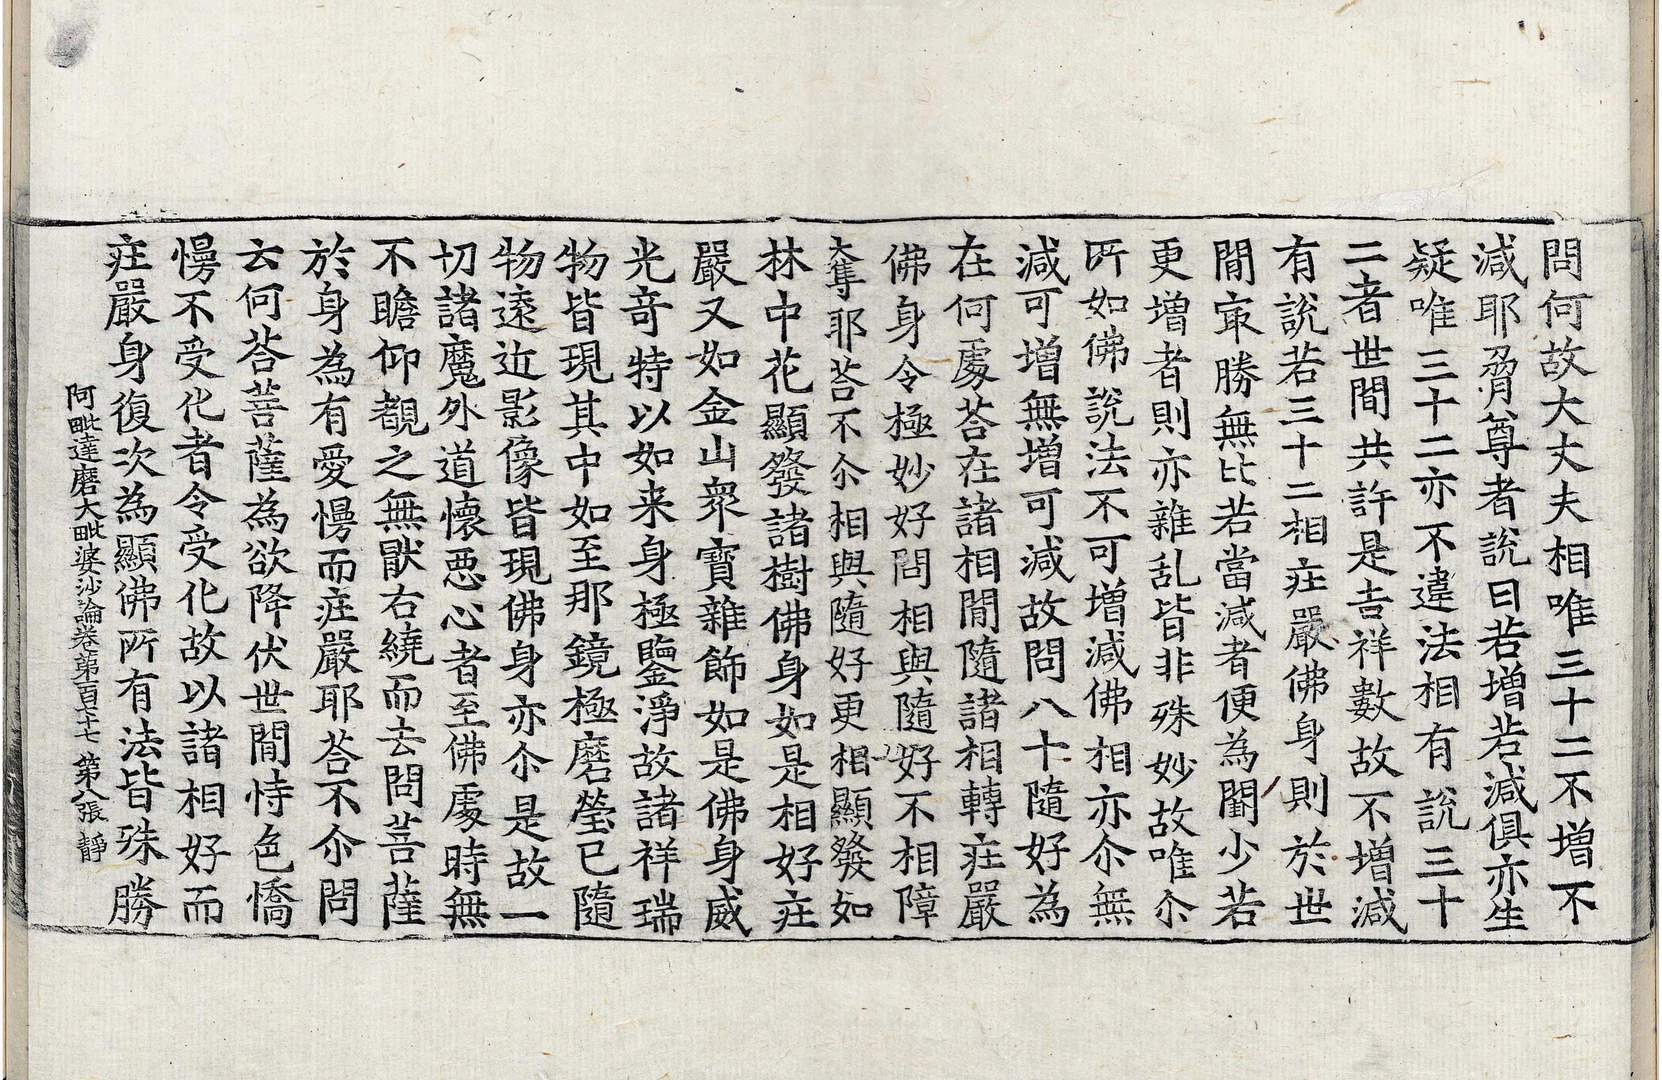 問何故大丈夫相唯三十二不增不
減耶脅尊者說曰若增若減俱亦生
疑唯三十二亦不違法相有說三十
二者世間共許是吉祥數故不增減
有說若三十二相庄嚴佛身則於世
間㝡勝無比若當減者便為闕少若
更增者則亦雜乱皆非殊妙故唯尒
所如佛說法不可增減佛相亦尒無
減可增無增可減故問八十隨好為
在何處荅在諸相間隨諸相轉庄嚴
佛身令極妙好問相與隨好不相障
奪耶荅不尒相與隨好更相顯發如
林中花顯發諸樹佛身如是相好庄
嚴又如金山衆寶雜飾如是佛身威
光奇特以如来身極鑒淨故諸祥瑞
物皆現其中如至那鏡極磨瑩已隨
物遠近影像皆現佛身亦尒是故一
切諸魔外道懷惡心者至佛處時無
不瞻仰覩之無猒右繞而去問菩薩
於身為有愛慢而庄嚴耶荅不尒問
云何荅菩薩為欲降伏世間恃色憍
慢不受化者令受化故以諸相好而
庄嚴身復次為顯佛所有法皆殊勝
阿毗達磨大毗婆沙論卷第一百七十七 第八張 靜